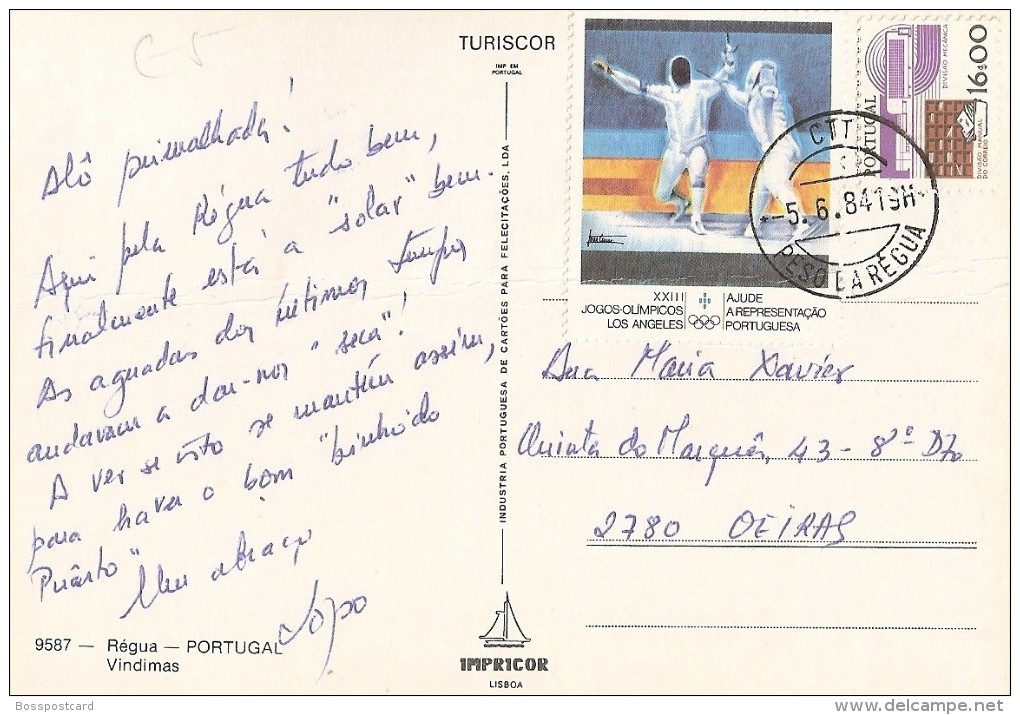 TURISCOR
IMP EM
PORTUGAL
Alô primalhada!
Aqui pela Régua tudo bem,
finalmente está a "solar" bem.
As aguadas dos últimos tempos
andavam a dar-nos "seca"!
A ver se isto se mantém assim,
para haver o bom "binho do
Puârto"
Um abraço
Lopo
9587 — Régua — PORTUGAL
Vindimas
INDUSTRIA PORTUGUESA DE CARTÕES PARA FELECITAÇÕES, LDA
IMPRICOR
LISBOA
XXIII
JOGOS·OLÍMPICOS
LOS ANGELES
AJUDE
A REPRESENTAÇÃO
PORTUGUESA
PORTUGAL
DIVISÃO MECÂNICA
16$00
DIVISÃO MANUAL
DO CORREIO
CTT
-5.6.84 19H
PESO DA RÉGUA
Ana Maria Xavier
Quinta do Marquês, 43 - 8º Dto
2780 OEIRAS
Bosspostcard
www.delcampe.net